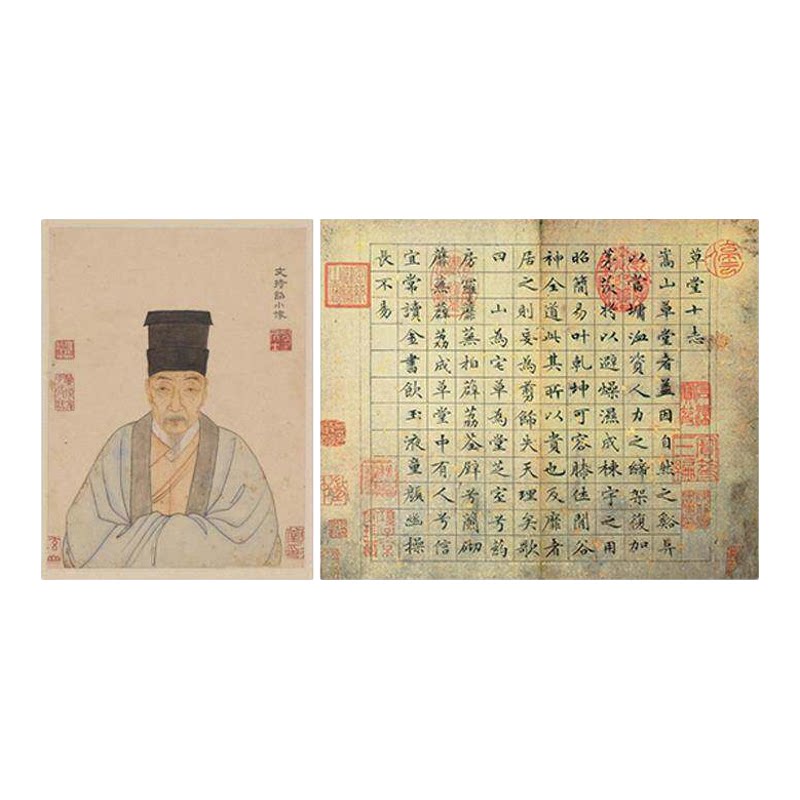 文待詔小像
草堂十志
嵩山草堂者蓋因自然之谿阜
以當墉洫資人力之締架復加
茅茨將以避燥濕成棟宇之用
昭簡易叶乾坤可容膝休閒谷
神全道此其所以貴也及靡者
居之則妄為剪飾失天理矣歌
曰 山為宅草為堂芝室兮葯
房羅蘼蕪拍薜荔荃壁兮蘭砌
蘼蕪薜荔成草堂中有人兮信
宜常讀金書飲玉液童顏幽操
長不易